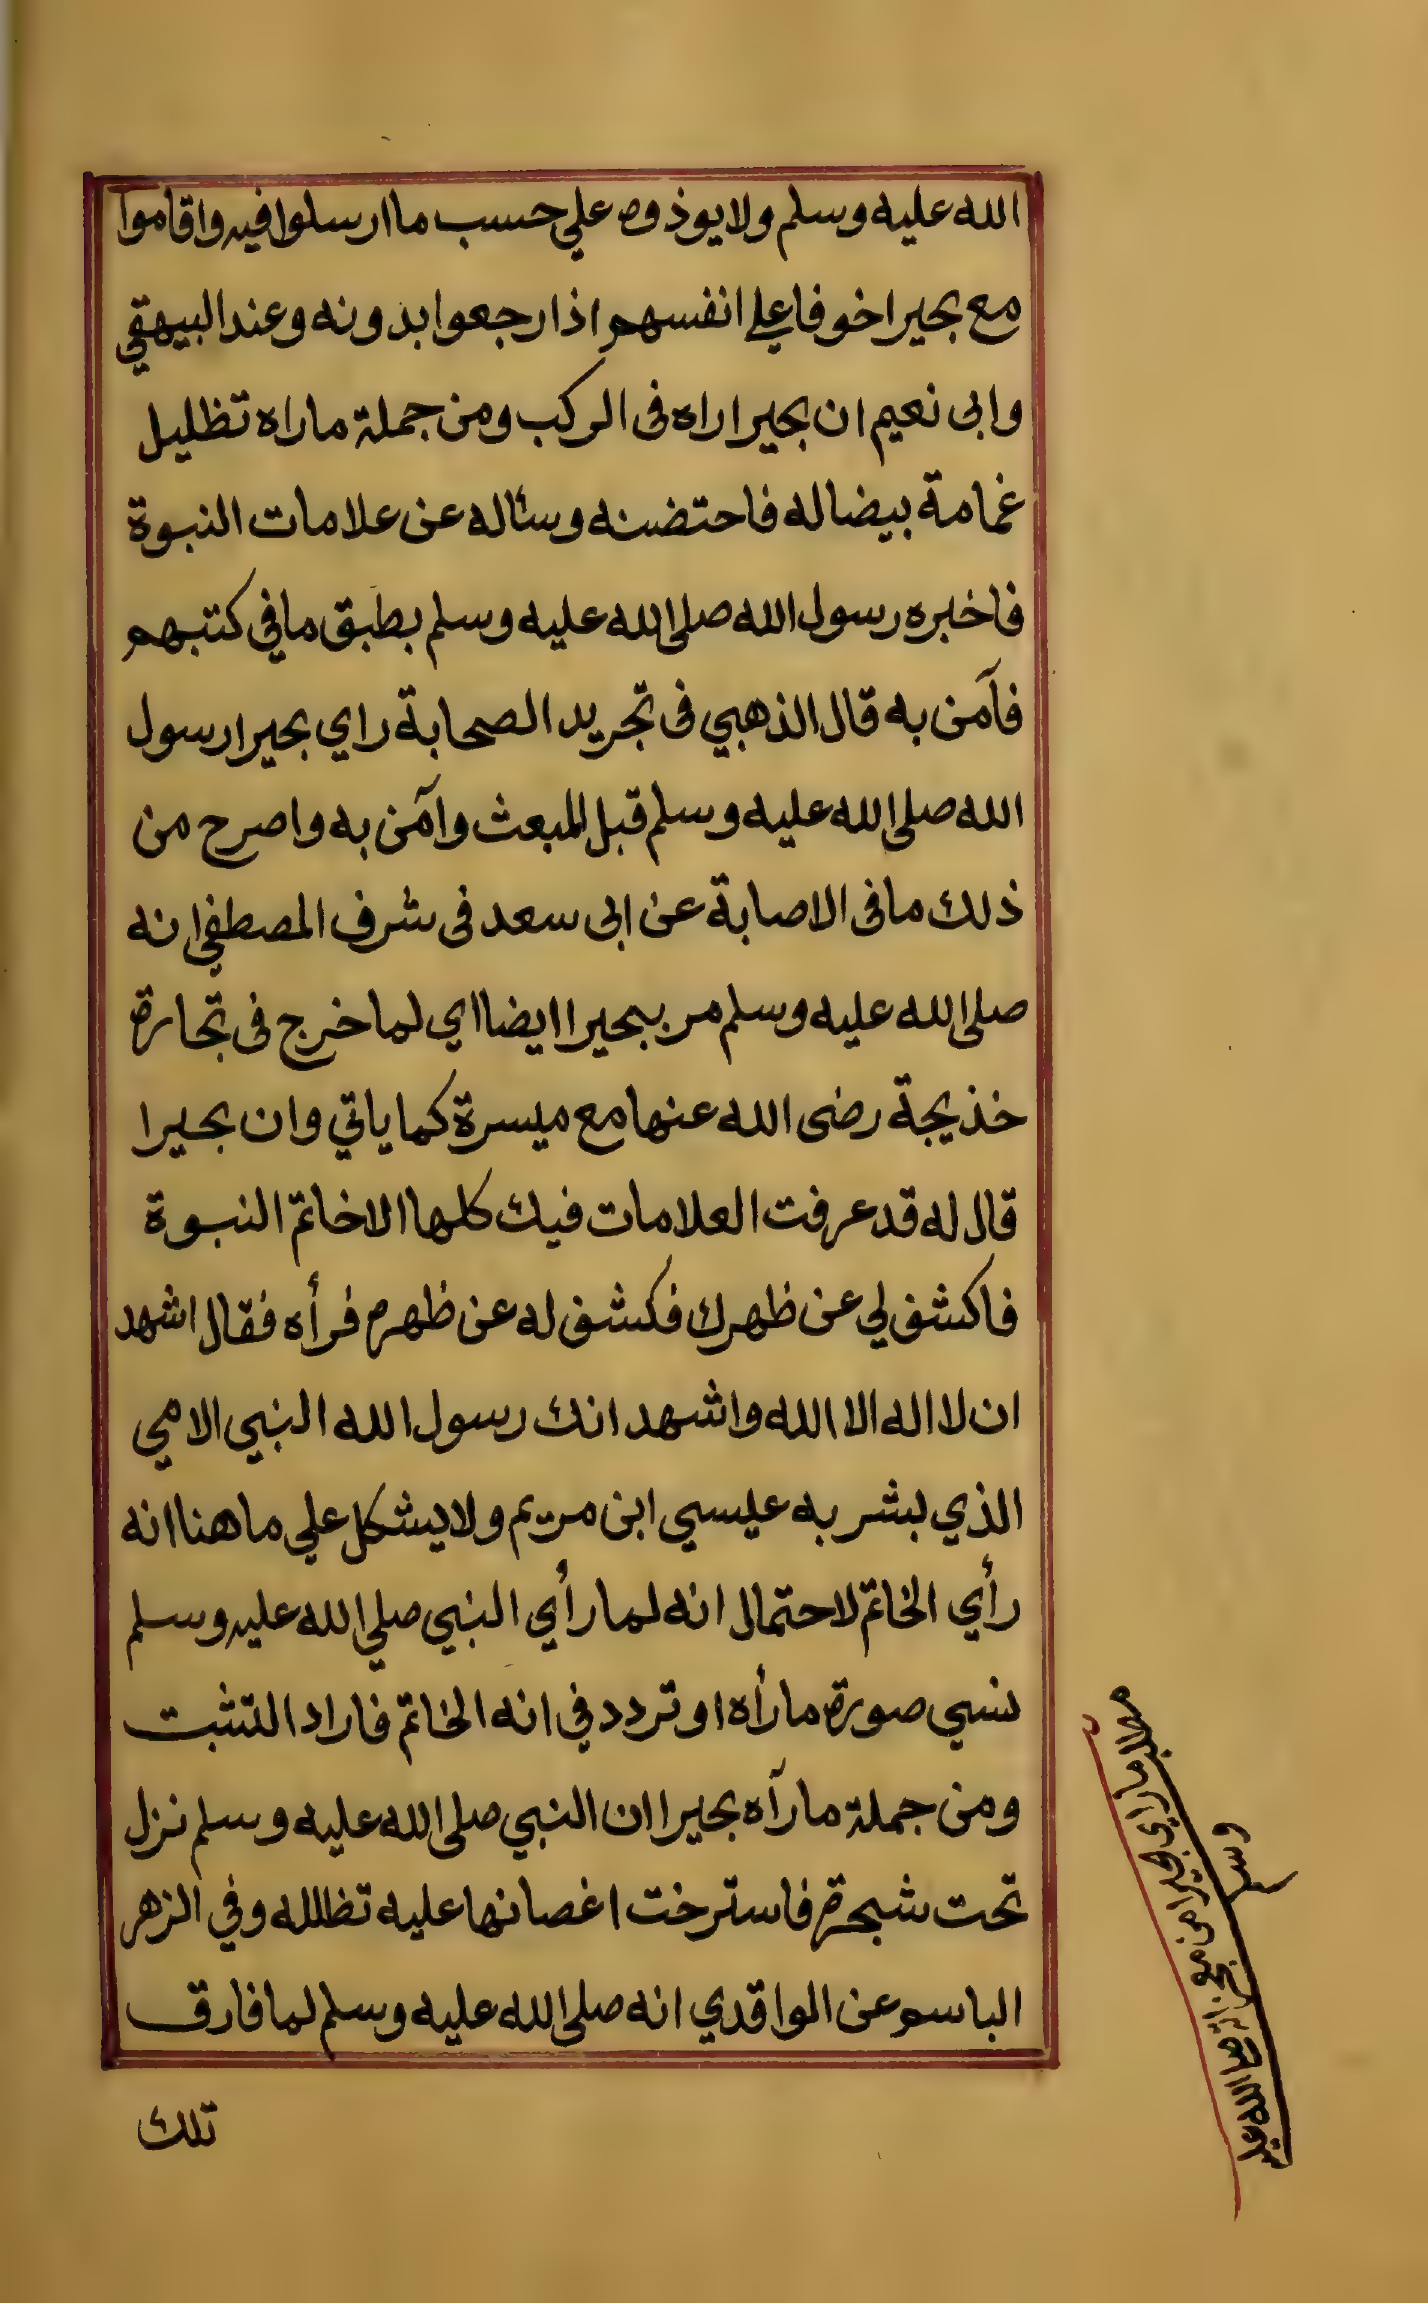 الله عليه وسلم ولا يوذوه علي حسب ما ارسلوا فيه واقاموا
مع بحيرا خوفا علي انفسهم اذا رجعوا بدونه وعند البيهقي
وابى نعيم ان بحيرا راه فى الركب ومن جملة ماراه تظليل
غمامة بيضا له فاحتضنه وسأله عن علامات النبوة
فاخبره رسول الله صلى الله عليه وسلم بطبق ما في كتبهم
فآمن به قال الذهبي فى تجريد الصحابة راي بحيرا رسول
الله صلى الله عليه وسلم قبل المبعث وآمن به واصرح من
ذلك ما فى الاصابة عن ابى سعد فى شرف المصطفي انه
صلى الله عليه وسلم مر ببحيرا ايضا اي لما خرج فى تجارة
خذيجة رضى الله عنها مع ميسرة كما ياتي وان بحيرا
قال له قد عرفت العلامات فيك كلها الا خاتم النبوة
فاكشف لي عن ظهرك فكشف له عن ظهره فرأه فقال اشهد
ان لا اله الا الله واشهد انك رسول الله النبي الامي
الذي بشر به عيسي ابن مريم ولا يشكل علي ما هنا انه
رأي الخاتم لاحتمال انه لما رأي النبي صلي الله عليه وسلم
نسي صورة مارأه او تردد في انه الخاتم فاراد التثبت
ومن جملة مارآه بحيرا ان النبي صلى الله عليه وسلم نزل
تحت شجرة فاسترخت اغصانها عليه تظلله وفي الزهر
الباسم عن الواقدي انه صلى الله عليه وسلم لما فارق
تلك
ما راي بحيرا من صلى الله عليه
وسلم